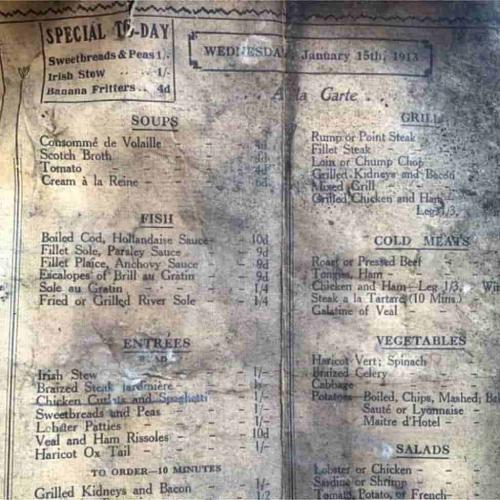 SPECIAL TO-DAY
Sweetbreads & Peas 1/-
Irish Stew .. .. 1/-
Banana Fritters .. 4d
WEDNESDAY, January 15th, 1913
. . A la Carte . .
SOUPS
Consommé de Volaille - - 4d
Scotch Broth - - - 3d
Tomato - - - 4d
Cream à la Reine - - - 6d
FISH
Boiled Cod, Hollandaise Sauce - 10d
Fillet Sole, Parsley Sauce - 9d
Fillet Plaice, Anchovy Sauce - 9d
Escalopes of Brill au Gratin - 9d
Sole au Gratin - - 1/4
Fried or Grilled River Sole - 1/4
ENTRÉES
READY
Irish Stew - - 1/-
Braized Steak Jardinière -
Chicken Cutlets and Spaghetti 1/-
Sweetbreads and Peas - 1/-
Lobster Patties - - 1/-
Veal and Ham Rissoles - 10d
Haricot Ox Tail - - 1/-
TO ORDER—10 MINUTES
Grilled Kidneys and Bacon - 1/-
1/2
GRILL
Rump or Point Steak -
Fillet Steak - -
Loin or Chump Chop
Grilled Kidneys and Bacon
Mixed Grill
Grilled Chicken and Ham—
Leg 1/3,
COLD MEATS
Roast or Pressed Beef -
Tongue, Ham - - -
Chicken and Ham—Leg 1/3, Win
Steak a la Tartare (10 Mins.)
Galatine of Veal - -
VEGETABLES
Haricot Vert; Spinach
Braized Celery - -
Cabbage - -
Potatoes—Boiled, Chips, Mashed; Ba
Sauté or Lyonnaise -
Maitre d'Hotel -
SALADS
Lobster or Chicken - -
Sardine or Shrimp -
Tomato, Potato, or French -